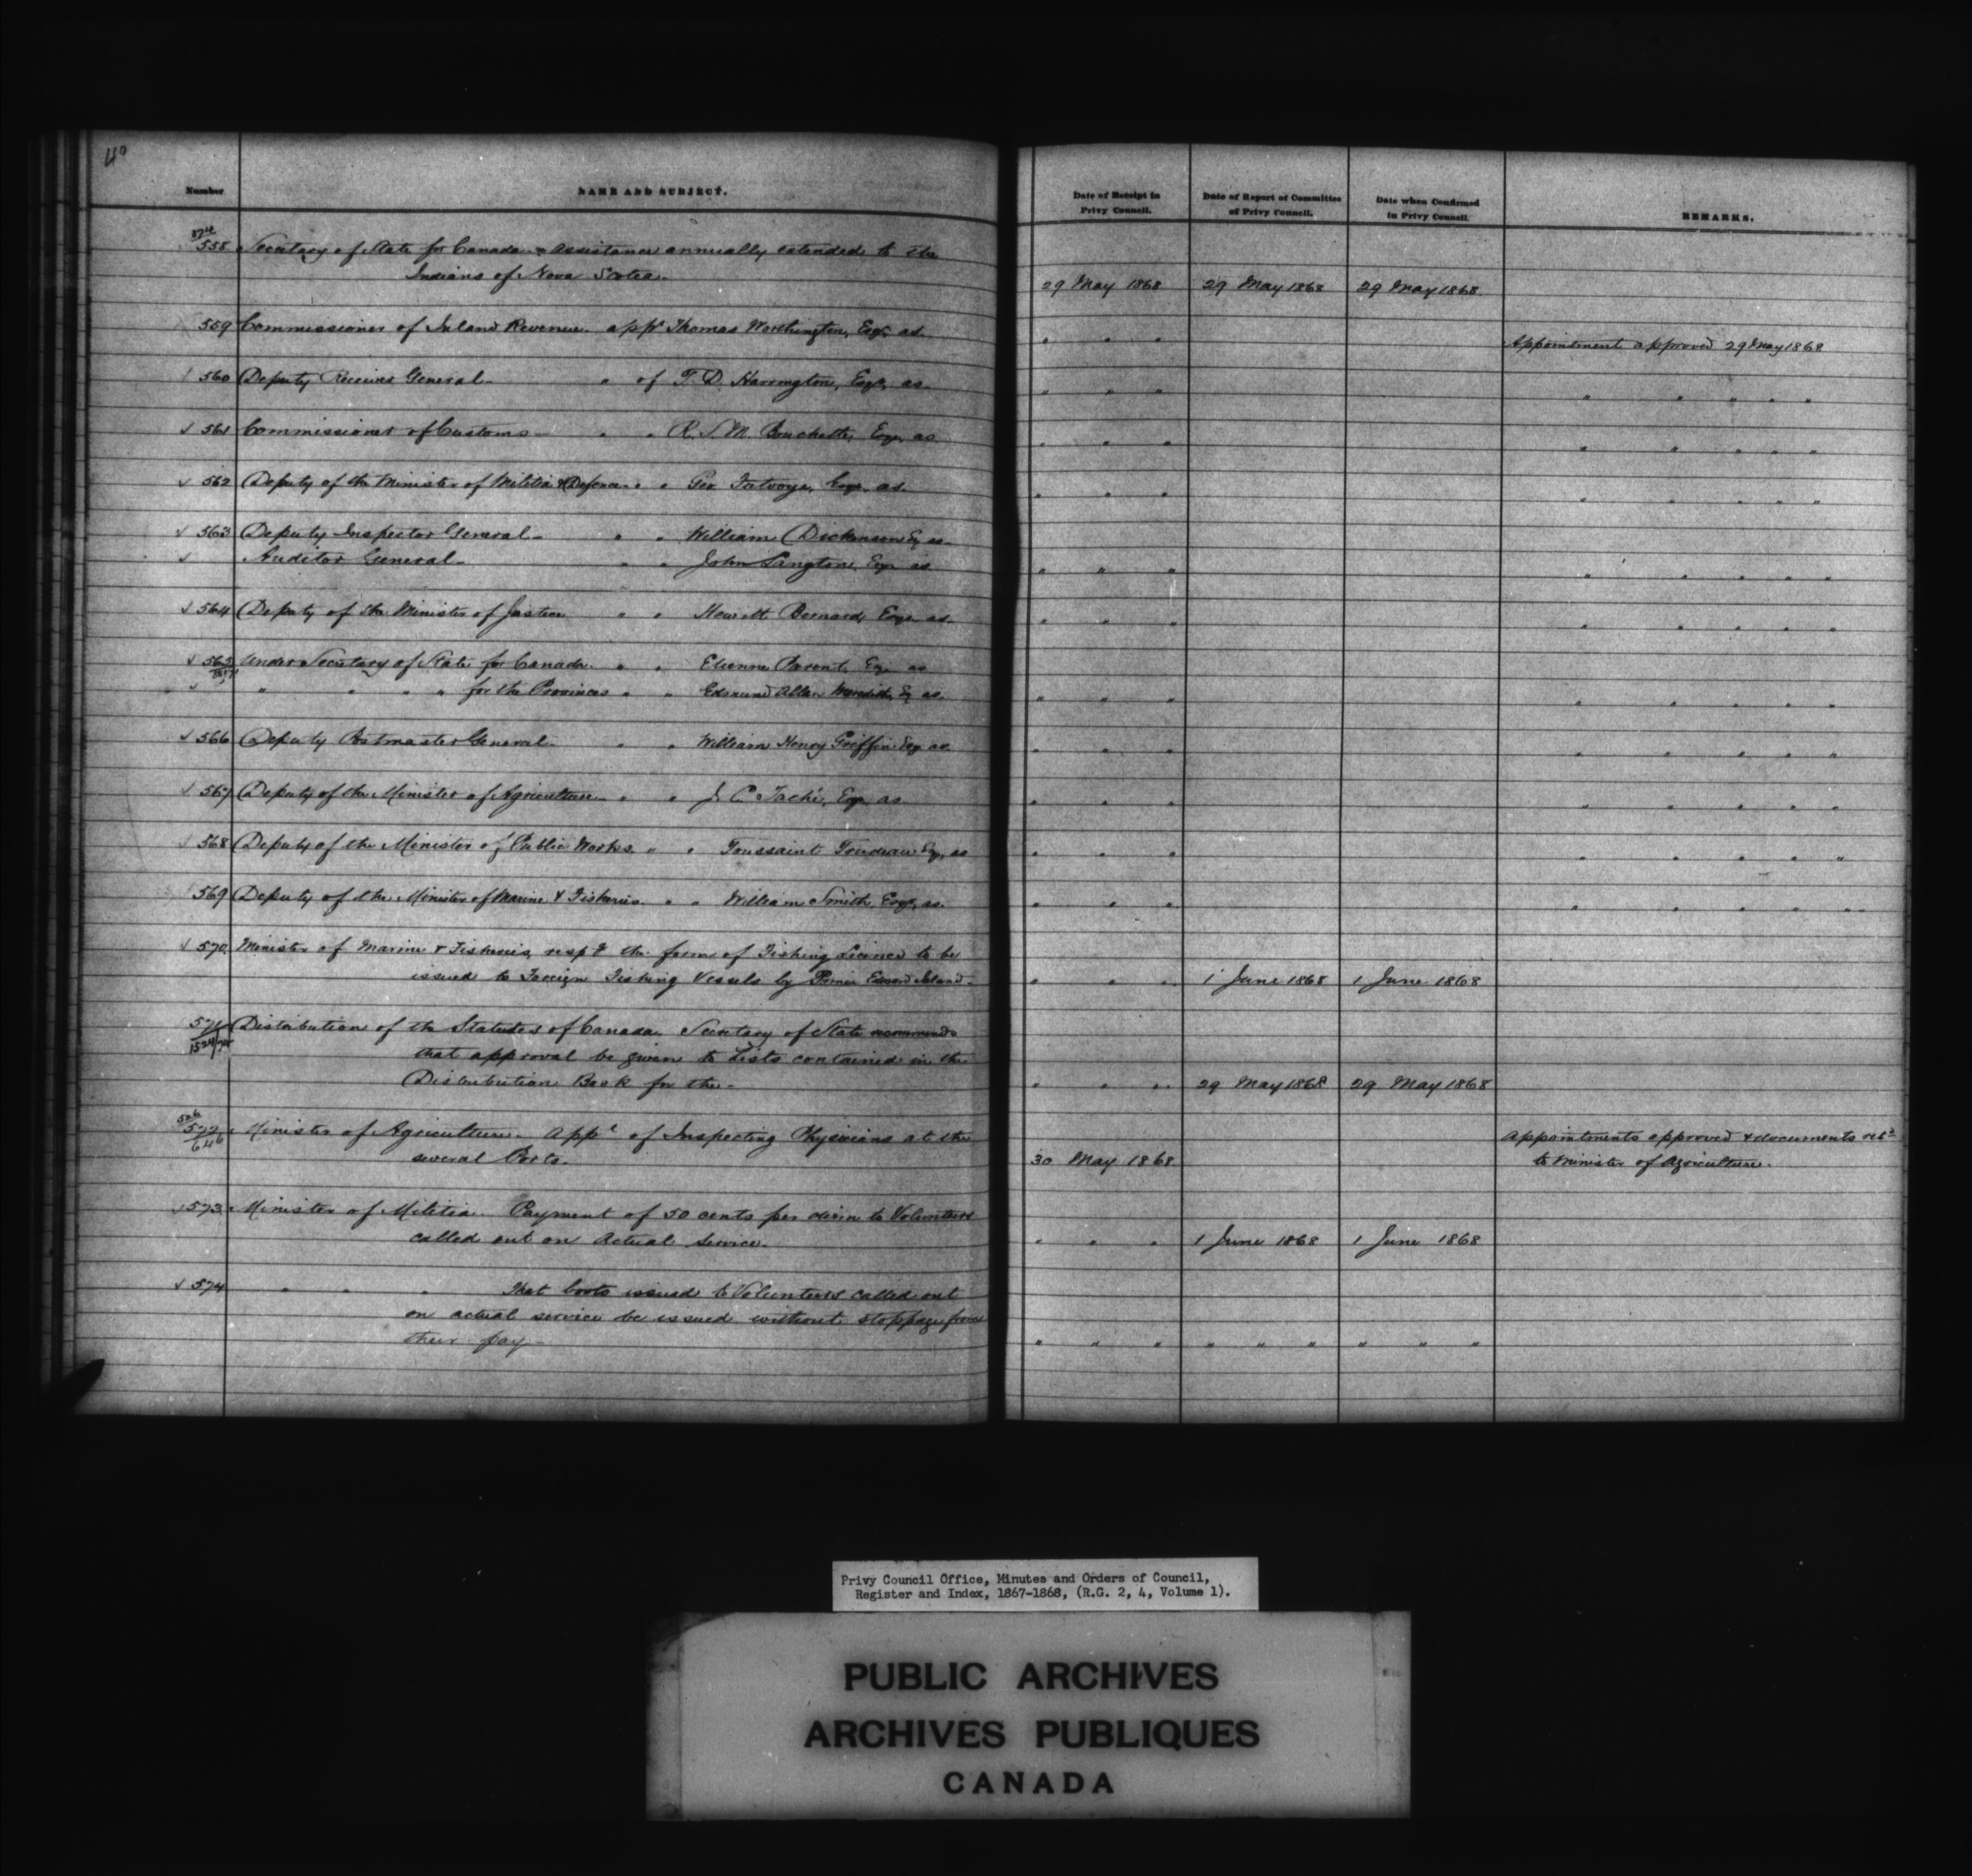 40
Number
NAME AND SUBJECT.
Date of Receipt in Privy Council.
Date of Report of Committee of Privy Council.
Date when Confirmed in Privy Council.
REMARKS.
558 Secretary of State for Canada - Assistance annually extended to the
Indians of Nova Scotia. 29 May 1868 29 May 1868 29 May 1868
559 Commissioner of Inland Revenue. appt Thomas Worthington, Esqr, as. " " " Appointment approved 29 May 1868
560 Deputy Receiver General - " of T. D. Harrington, Esqr, as - " " " " " " " "
✓ 561 Commissioner of Customs - " " R. S. M. Bouchette, Esqr, as " " " " " " " "
✓ 562 Deputy of the Minister of Militia & Defence " " Geo Futvoye, Esqr, as. " " " " " " " "
✓ 563 Deputy Inspector General - " " William Dickinson Eq as -
✓ Auditor General - " " John Langton, Esqr as " " " " " " " "
✓ 564 Deputy of the Minister of Justice " " Hewitt Bernard, Esqr as - " " " " " " " "
✓ 565 Under Secretary of State for Canada. " " Etienne Parent, Eq as
✓ " " " " for the Provinces " " Edmund Allen Meredith, Eq as - " " " " " " " "
✓ 566 Deputy Postmaster General - " " William Henry Griffin Esq as " " " " " " " "
✓ 567 Deputy of the Minister of Agriculture - " " J. C. Taché, Esqr, as " " " " " " " "
568 Deputy of the Minister of Public Works. " " Toussaint Trudeau Esq, as " " " " " " " "
569 Deputy of the Minister of Marine & Fisheries. " " William Smith, Esqr, as. " " " " " " " "
✓ 570 Minister of Marine & Fisheries, respg the form of Fishing Licence to be
issued to Foreign Fishing Vessels by Prince Edward Island - " " " 1 June 1868 1 June 1868
571 Distribution of the Statutes of Canada. Secretary of State recommends
that approval be given to Lists contained in the
Distribution Book for the - " " " 29 May 1868 29 May 1868
526
572 Minister of Agriculture - Appt of Inspecting Physicians at the Appointments approved & documents retd
646
several Ports. 30 May 1868 to Minister of Agriculture.
573 Minister of Militia. Payment of 50 cents per diem to Volunteers
called out on Actual Service. " " " 1 June 1868 1 June 1868
✓ 574 " " " That boots issued to Volunteers called out
on actual service be issued without stoppage from
their pay - " " " " " " " " "
Privy Council Office, Minutes and Orders of Council,
Register and Index, 1867-1868, (R.G. 2, 4, Volume 1).
PUBLIC ARCHIVES
ARCHIVES PUBLIQUES
CANADA